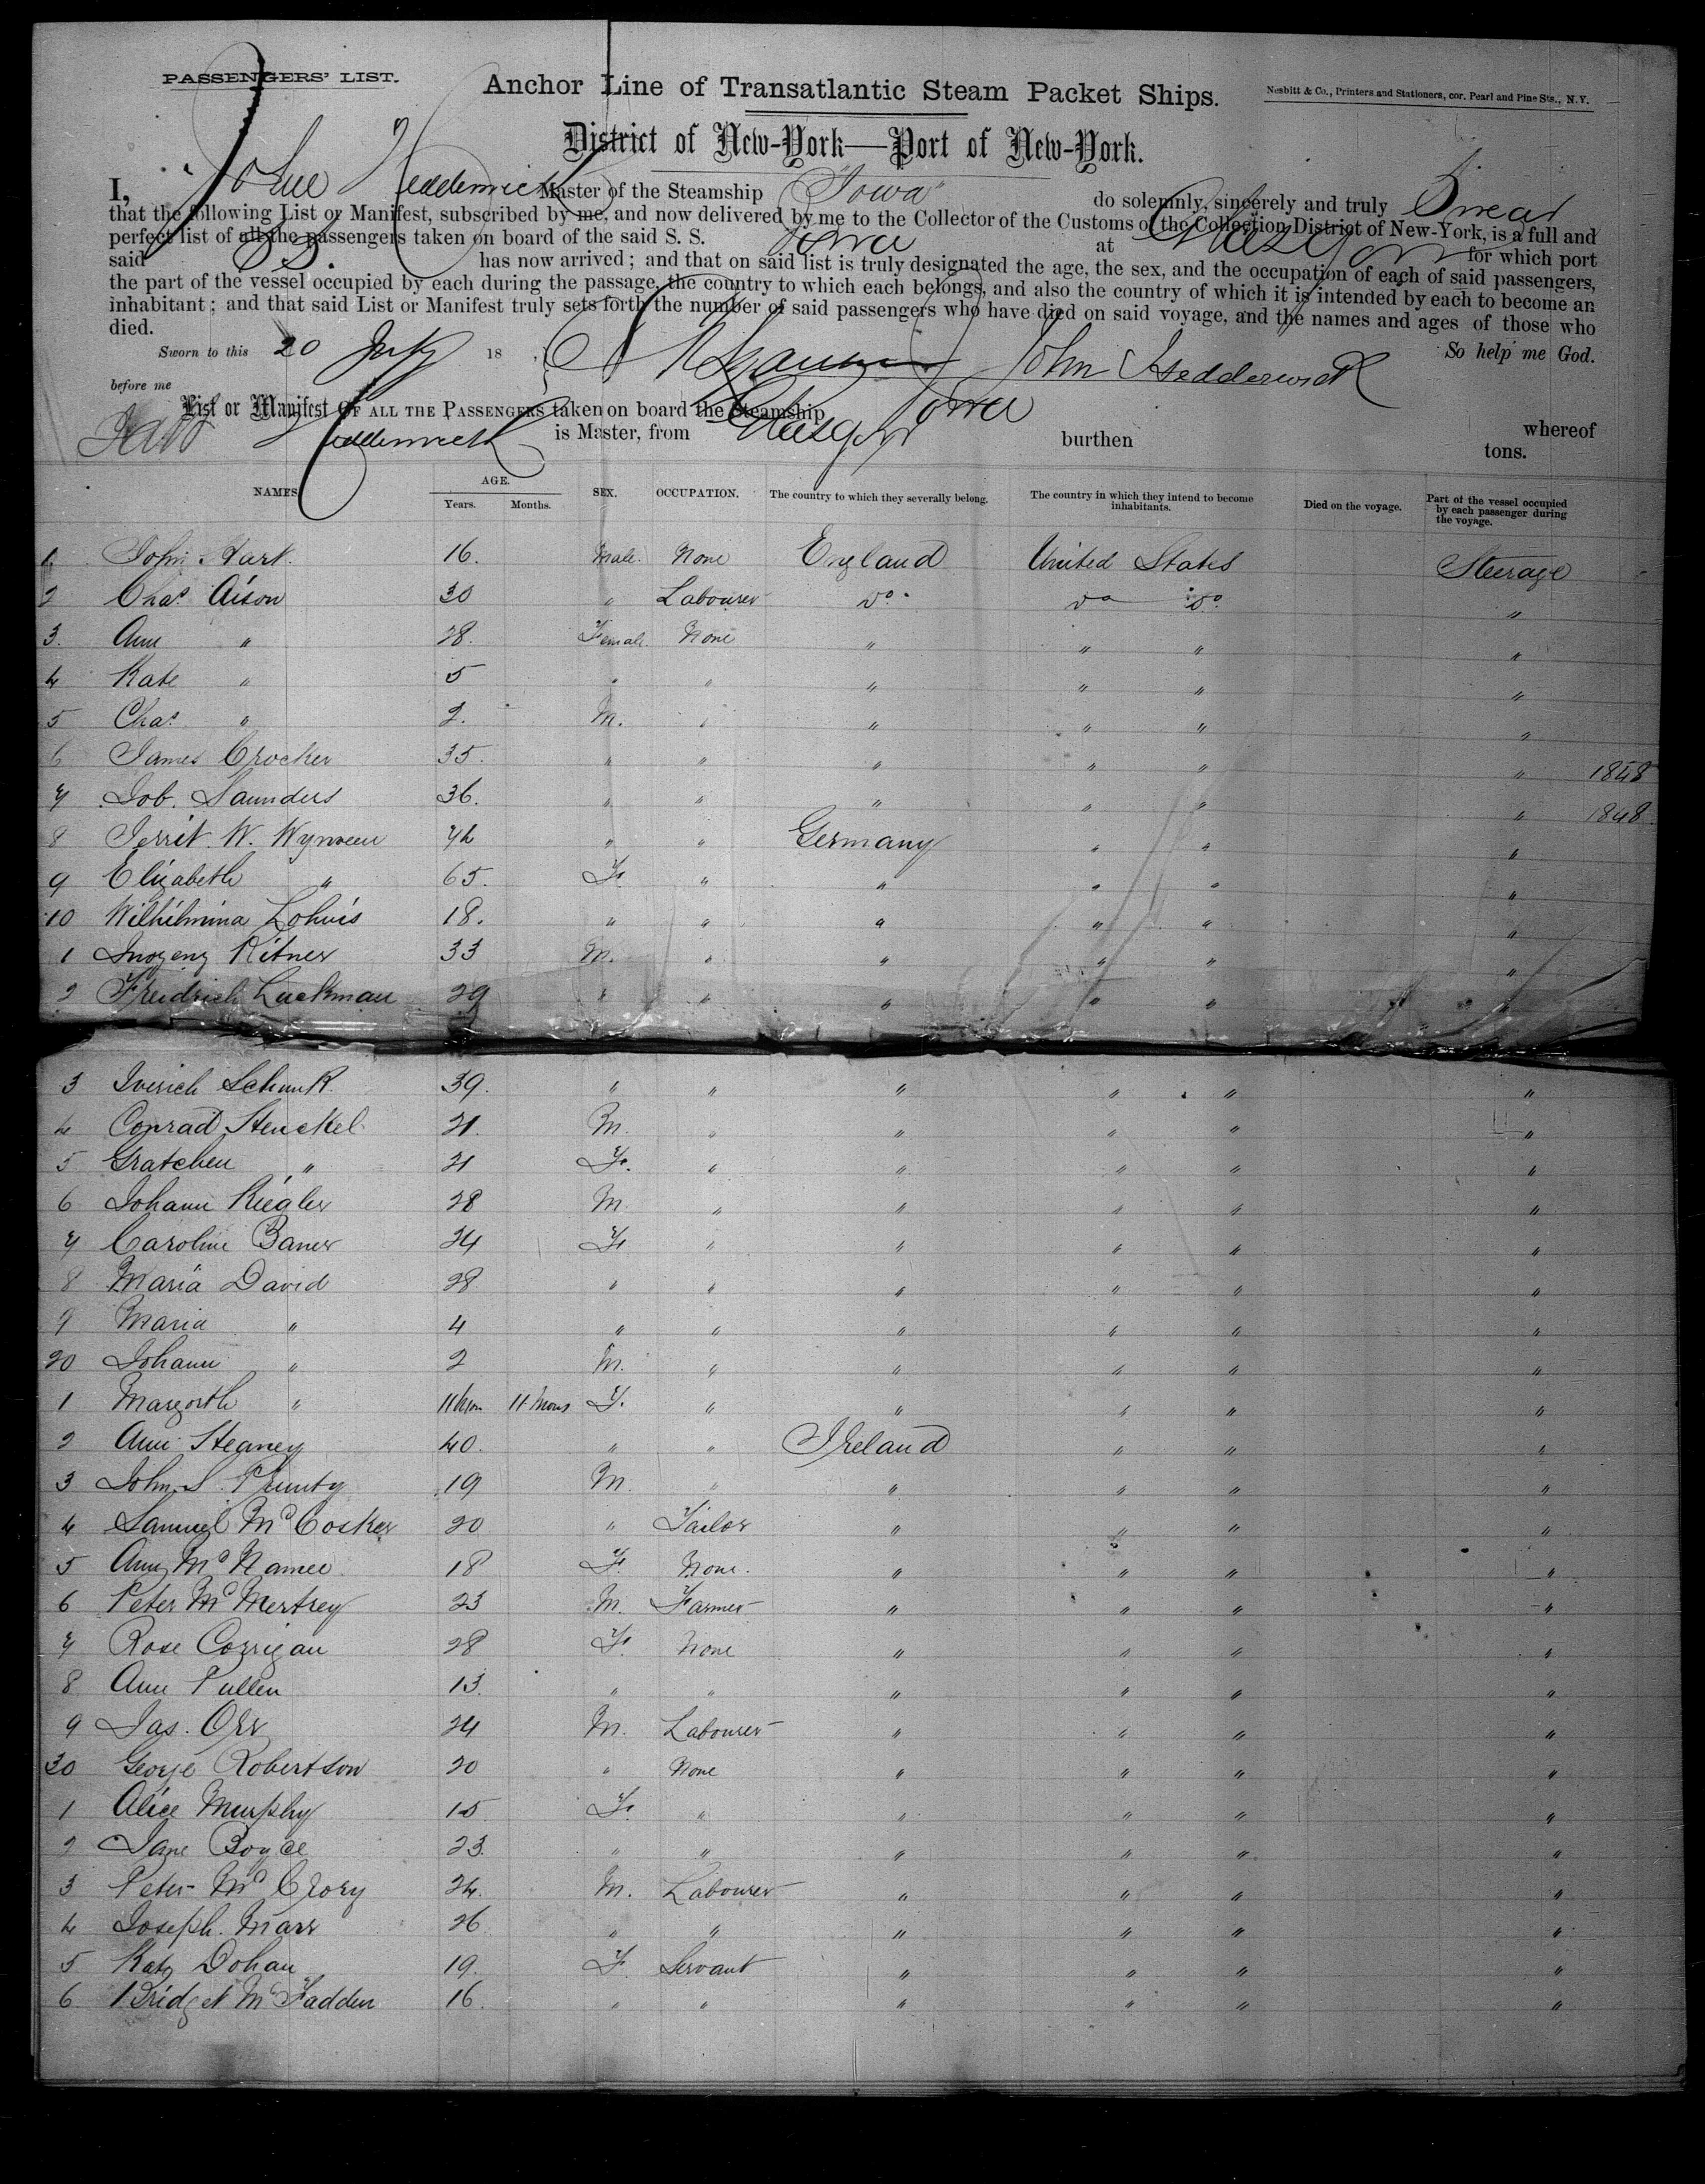 PASSENGERS' LIST.
Anchor Line of Transatlantic Steam Packet Ships.
Nesbitt & Co., Printers and Stationers, cor. Pearl and Pine Sts., N.Y.
District of New-York—Port of New-York.
I, John Hedderwick Master of the Steamship "Iowa" do solemnly, sincerely and truly Swear
that the following List or Manifest, subscribed by me, and now delivered by me to the Collector of the Customs of the Collection District of New-York, is a full and
perfect list of all the passengers taken on board of the said S. S. Iowa at Glasgow for which port
said SS. has now arrived; and that on said list is truly designated the age, the sex, and the occupation of each of said passengers,
the part of the vessel occupied by each during the passage, the country to which each belongs, and also the country of which it is intended by each to become an
inhabitant; and that said List or Manifest truly sets forth the number of said passengers who have died on said voyage, and the names and ages of those who
died.
Sworn to this 20 July 18 , John Hedderwick So help me God.
before me
List or Manifest OF ALL THE PASSENGERS taken on board the Steamship Iowa whereof
Hedderwick is Master, from Glasgow burthen tons.
NAMES AGE. SEX. OCCUPATION. The country to which they severally belong. The country in which they intend to become inhabitants. Died on the voyage. Part of the vessel occupied by each passenger during the voyage.
Years. Months.
1. John Hart. 16. Male. None England United States Steerage
2 Chas. Aison 30 " Labourer Do. Do Do. "
3. Ann " 28. Female. None " " " "
4 Kate " 5 " " " " " "
5 Chas. " 2. M. " " " " "
6 James Crocker 35. " " " " " " 1848
7 Job. Saunders 36. " " " " " " 1848.
8 Jerrit. W. 72 " " Germany " " "
9 Elizabeth " 65. F. " " " " "
10 Wilhilmina Lohuis 18. " " " " " "
1 Kitner 33 M. " " " " "
2 Freidrich Luckman 29 " " " " " "
3 Schunk 39. " " " " " "
4 Conrad Stenckel 21. M. " " " " "
5 Gratchen " 21 F. " " " " "
6 Johann Riegler 28 M. " " " " "
7 Caroline Baner 24 F. " " " " "
8 Maria David 28 " " " " " "
9 Maria " 4 " " " " " "
20 Johann " 2 M. " " " " "
1 Margorth " 11 Mon 11 Mons F. " " " " "
2 Ann Steaney 40. " " Ireland " " "
3 John S. Prunty 19 M. " " " " "
4 Samuel McCosker 20 " Tailor " " " "
5 Ann McNamee. 18 F. None. " " " "
6 Peter McMertrey 23 M. Farmer " " " "
7 Rose Corrigan 28 F. None " " " "
8 Ann Pullen 13. " " " " " "
9 Jas. Orr 24 M. Labourer " " " "
30 George Robertson 20 " None " " " "
1 Alice Murphy 15 F. " " " " "
2 Jane Boyce 23. " " " " " "
3 Peter McCrory 24. M. Labourer " " " "
4 Joseph. Marr 26 " " " " " "
5 Katy Dohan 19. F. Servant " " " "
6 Bridget McFadden 16. " " " " " "